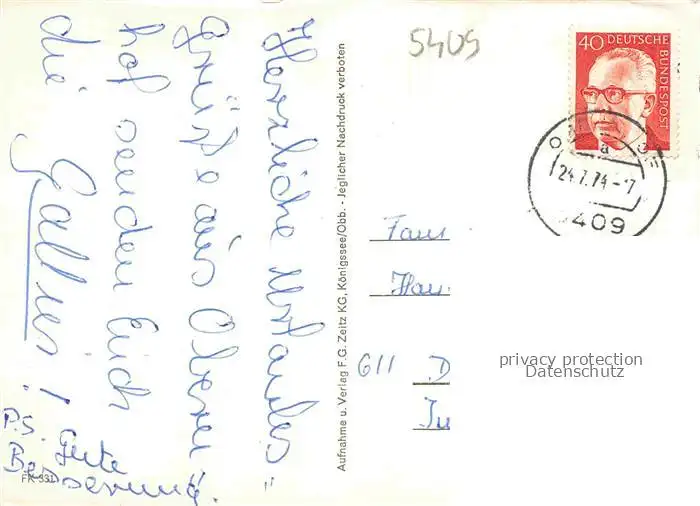 Herzliche Urlaubs=
grüße aus Oberau"
hof senden Euch
die Gallner!
P.S. Gute
Besserung.
FK 331
Aufnahme u. Verlag F.G. Zeitz KG, Königssee/Obb. - Jeglicher Nachdruck verboten
5409
40 DEUTSCHE
BUNDESPOST
a
24.7.74-7
409
Fam
Hau
611 D
In
privacy protection
Datenschutz